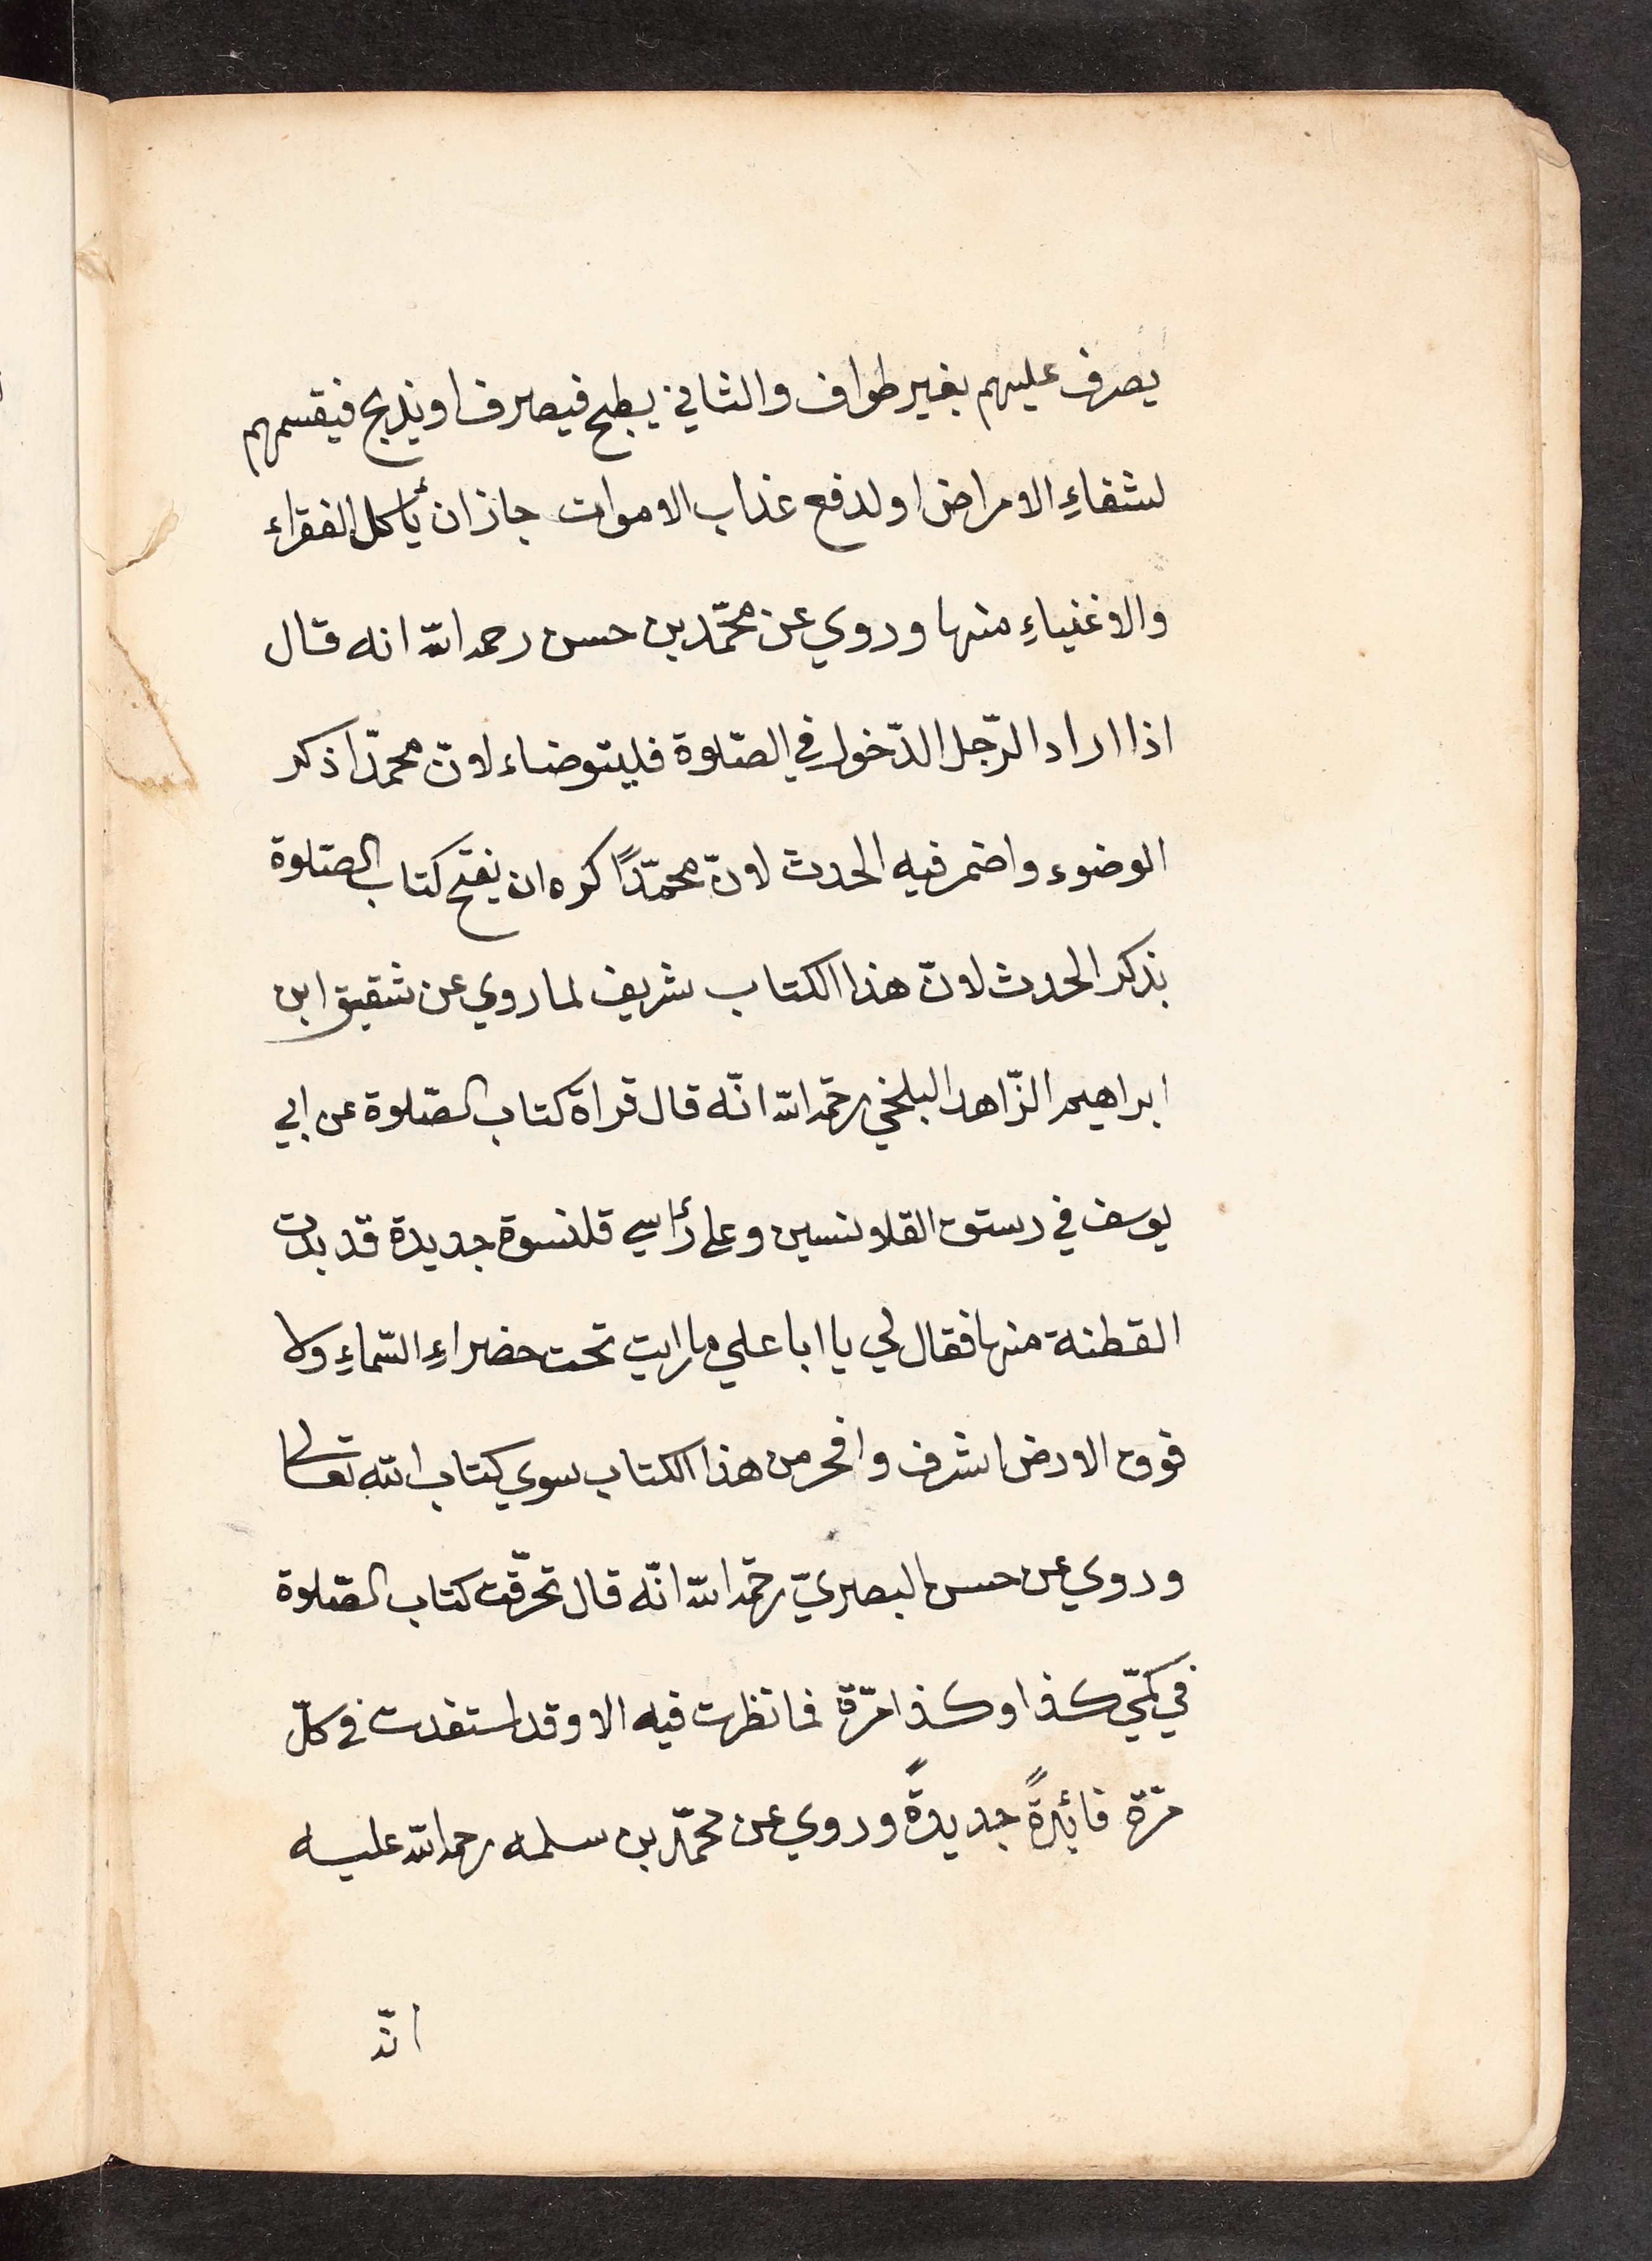 يصرف عليهم بغير طواف والثاني يطبخ فيصرف او يذبح فيقسمهم
لشفاءِ الامراض اولدفع عذاب الاموات جاز ان يأكل الفقراء
والاغنياءِ منها وروي عن محمّد بن حسن رحمه الله انه قال
اذا اراد الرّجل الدّخول في الصّلوة فليتوضاء لانّ محمّدًا ذكر
الوضوء واضمر فيه الحدث لانّ محمّدًا كره ان يفتح كتاب الصّلوة
بذكر الحدث لانّ هذا الكتاب شريف لما روي عن شقيق ابن
ابراهيم الزّاهد البلخي رحمه الله انّه قال قراة كتاب الصّلوة عن ابي
يوسف في رستق القلانسين وعلى رأسي قلنسوة جديدة قد بدت
القطنة منها فقال لي يا ابا علي ما رايت تحت حضراءِ السّماءِ ولا
فوق الارض اشرف وافخر من هذا الكتاب سوي كتاب الله تعالى
وروي عن حسن البصريّ رحمه الله انّه قال تخرّقت كتاب الصّلوة
في كمّي كذا وكذا مرّة فما نظرت فيه الا وقد استفدت في كلّ
مرّة فائدةً جديدةً وروي عن محمّد بن سلمه رحمه الله عليه
انّه